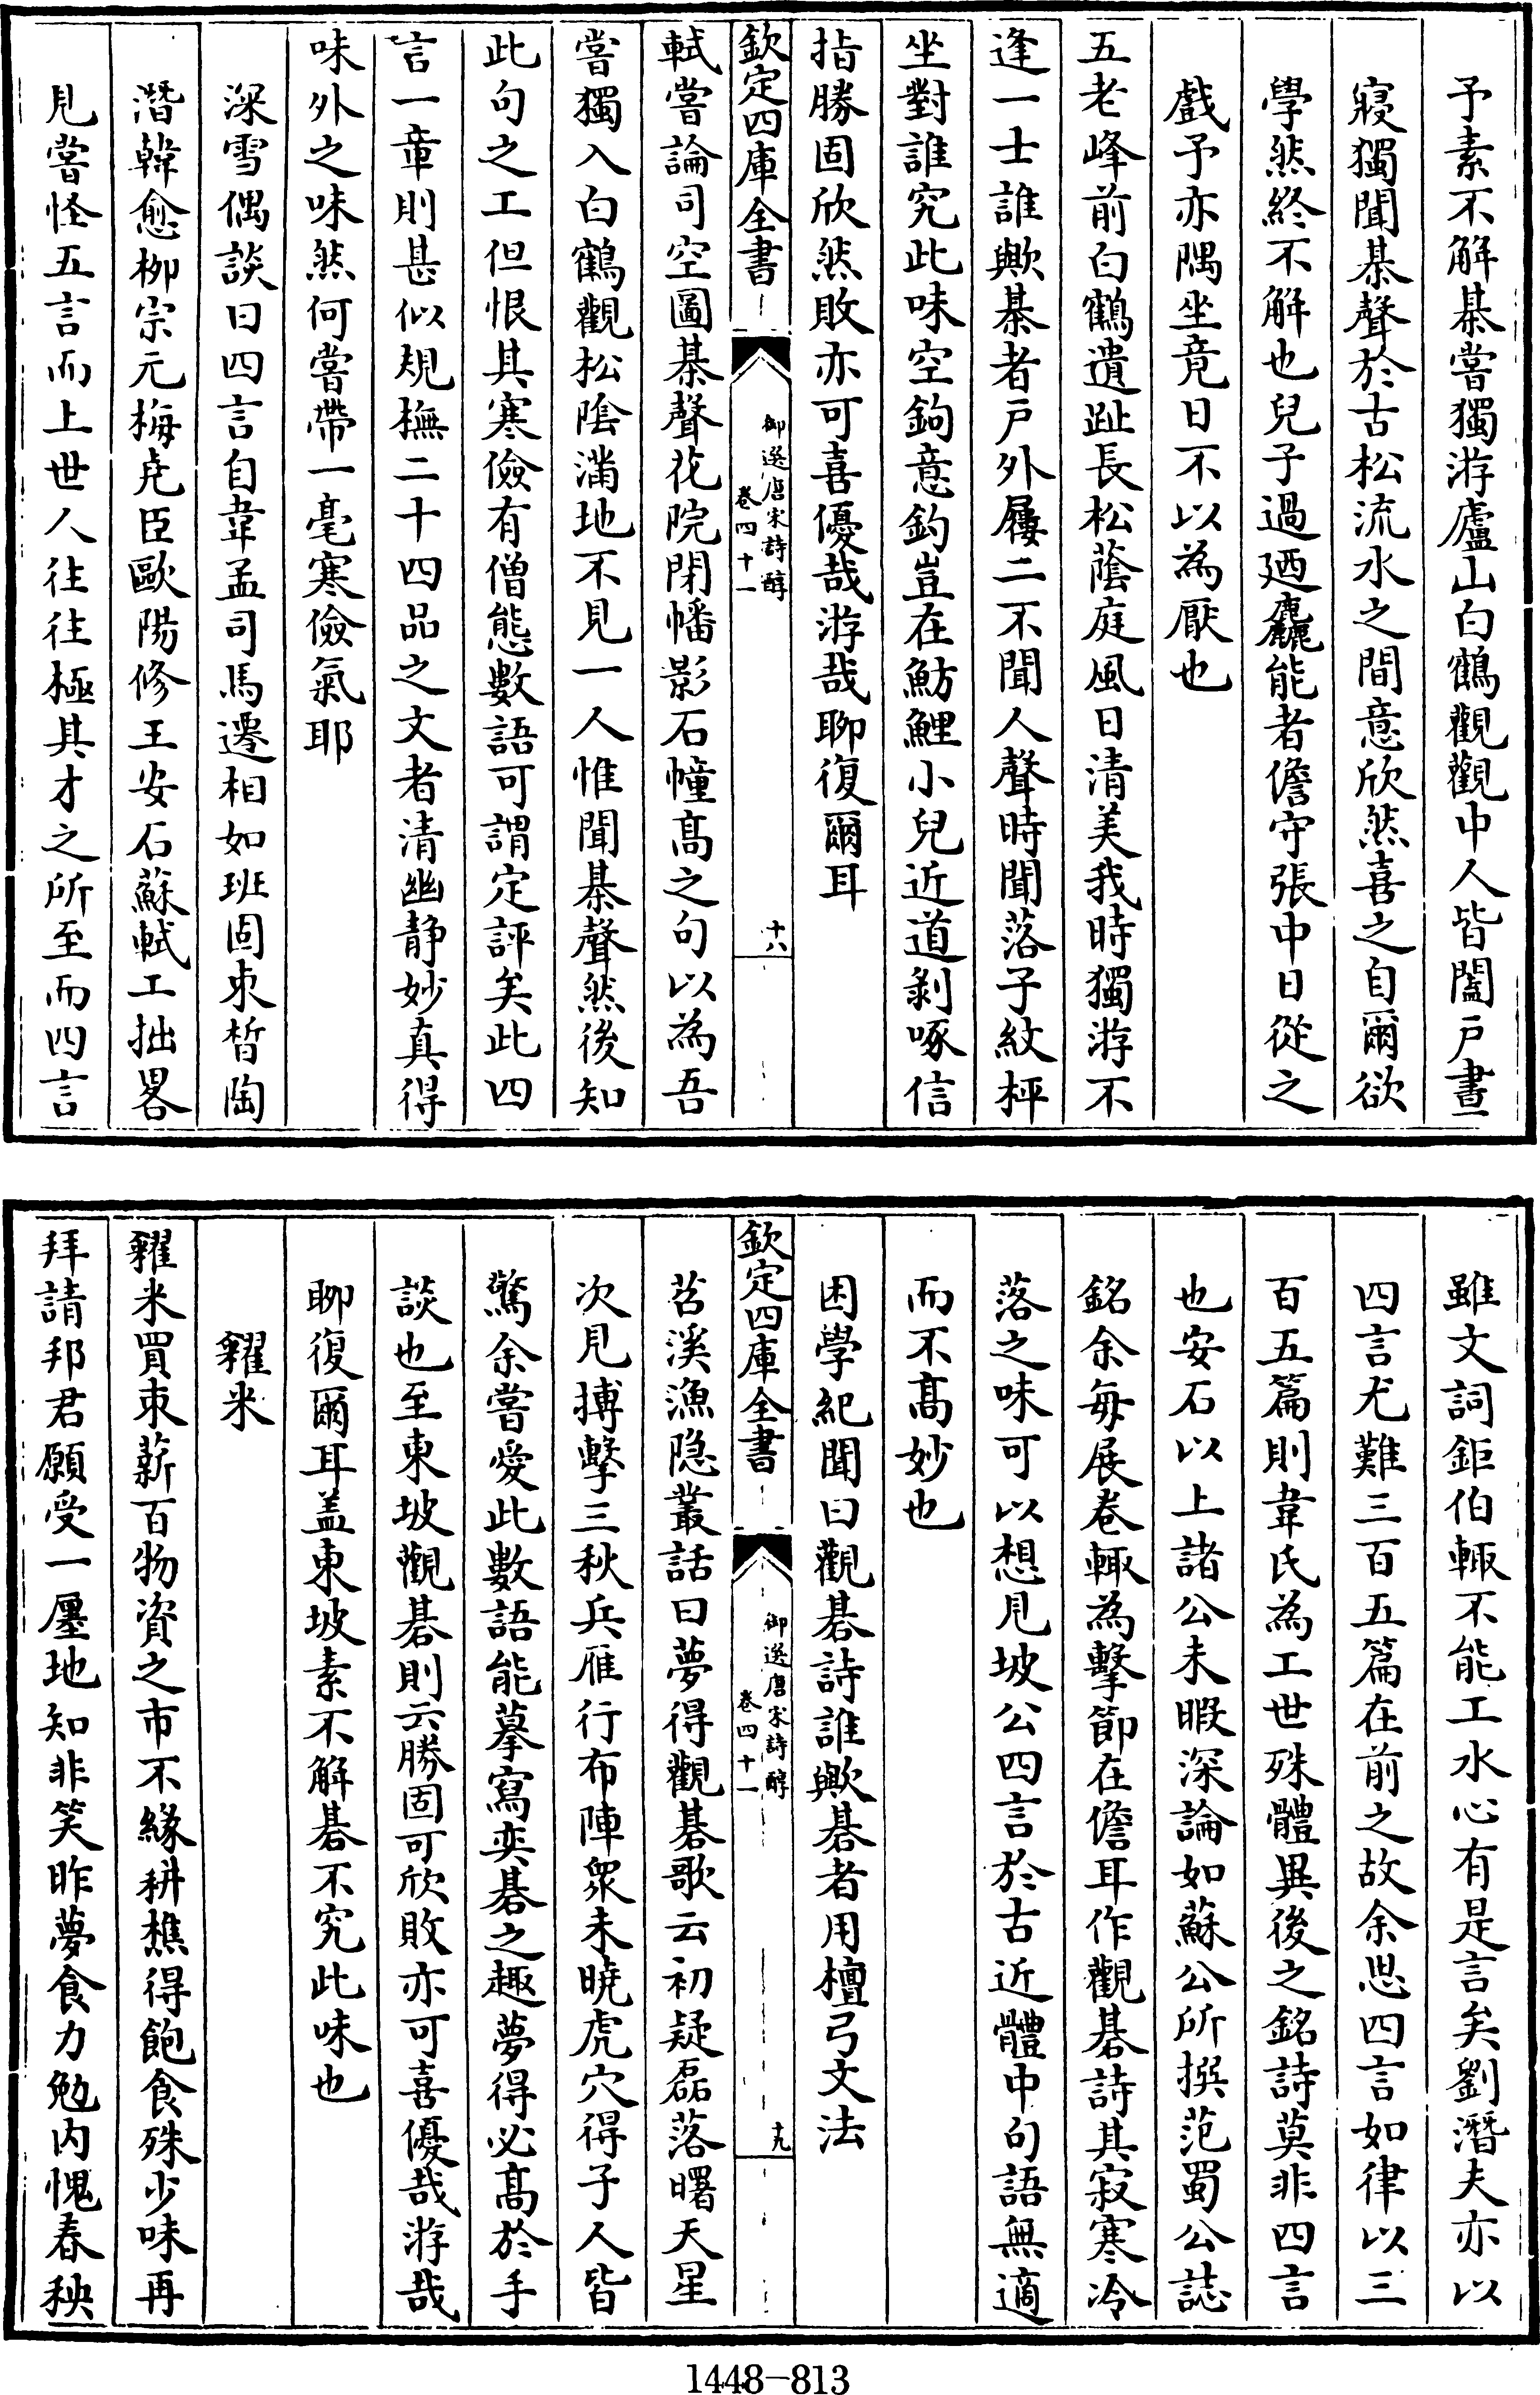 予素不解棊嘗獨游廬山白鶴觀觀中人皆闔戶晝
寢獨聞棊聲於古松流水之間意欣然喜之自爾欲
學然終不解也兒子過廼麤能者儋守張中日從之
戲予亦隅坐竟日不以為厭也
五老峰前白鶴遺趾長松蔭庭風日清美我時獨游不
逢一士誰歟棊者戶外屨二不聞人聲時聞落子紋枰
坐對誰究此味空鉤意釣豈在魴鯉小兒近道剝啄信
指勝固欣然敗亦可喜優哉游哉聊復爾耳
欽定四庫全書
御選唐宋詩醇
卷四十一
十八
軾嘗論司空圖棊聲花院閉幡影石幢髙之句以為吾
嘗獨入白鶴觀松陰滿地不見一人惟聞棊聲然後知
此句之工但恨其寒儉有僧態數語可謂定評矣此四
言一章則甚似規橅二十四品之文者清幽静妙真得
味外之味然何嘗帶一毫寒儉氣耶
深雪偶談曰四言自韋孟司馬遷相如班固束晳陶
潛韓愈栁宗元梅堯臣歐陽修王安石蘇軾工拙畧
見嘗怪五言而上世人往往極其才之所至而四言
雖文詞鉅伯輒不能工水心有是言矣劉潛夫亦以
四言尤難三百五篇在前之故余思四言如律以三
百五篇則韋氏為工世殊體異後之銘詩莫非四言
也安石以上諸公未暇深論如蘇公所撰范蜀公誌
銘余每展卷輒為擊節在儋耳作觀碁詩其寂寒冷
落之味可以想見坡公四言於古近體中句語無適
而不髙妙也
困學紀聞曰觀碁詩誰歟碁者用檀弓文法
欽定四庫全書
御選唐宋詩醇
卷四十一
十九
苕溪漁隐叢話曰夢得觀碁歌云初疑磊落曙天星
次見搏擊三秋兵雁行布陣衆未曉虎穴得子人皆
驚余嘗愛此數語能摹寫奕碁之趣夢得必髙於手
談也至東坡觀碁則云勝固可欣敗亦可喜優哉游哉
聊復爾耳盖東坡素不解碁不究此味也
糴米
糴米買束薪百物資之市不緣耕樵得飽食殊少味再
拜請邦君願受一廛地知非笑昨夢食力勉内愧春秧
1448-813